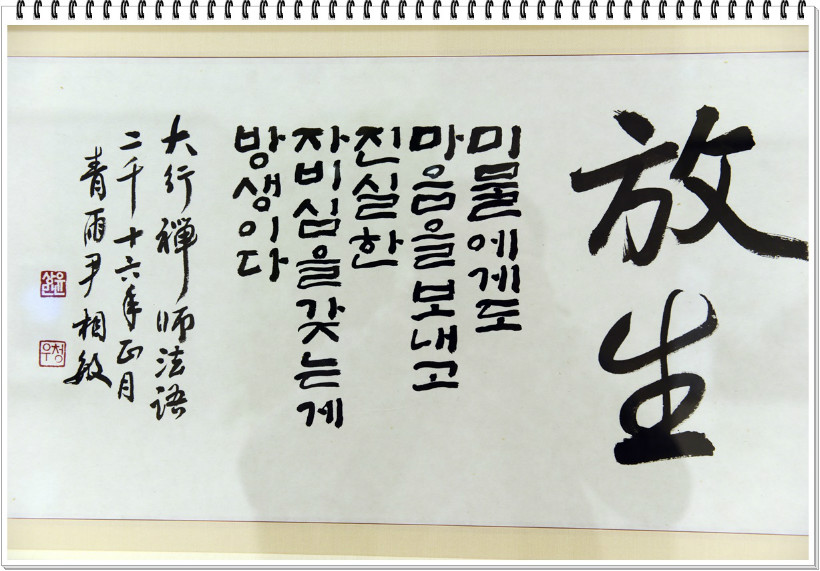 放生
미물에게도
마음을보내고
진실한
자비심을갖는게
방생이다
大行禪師法語
二千十六年正月
青雨尹相敏
청우